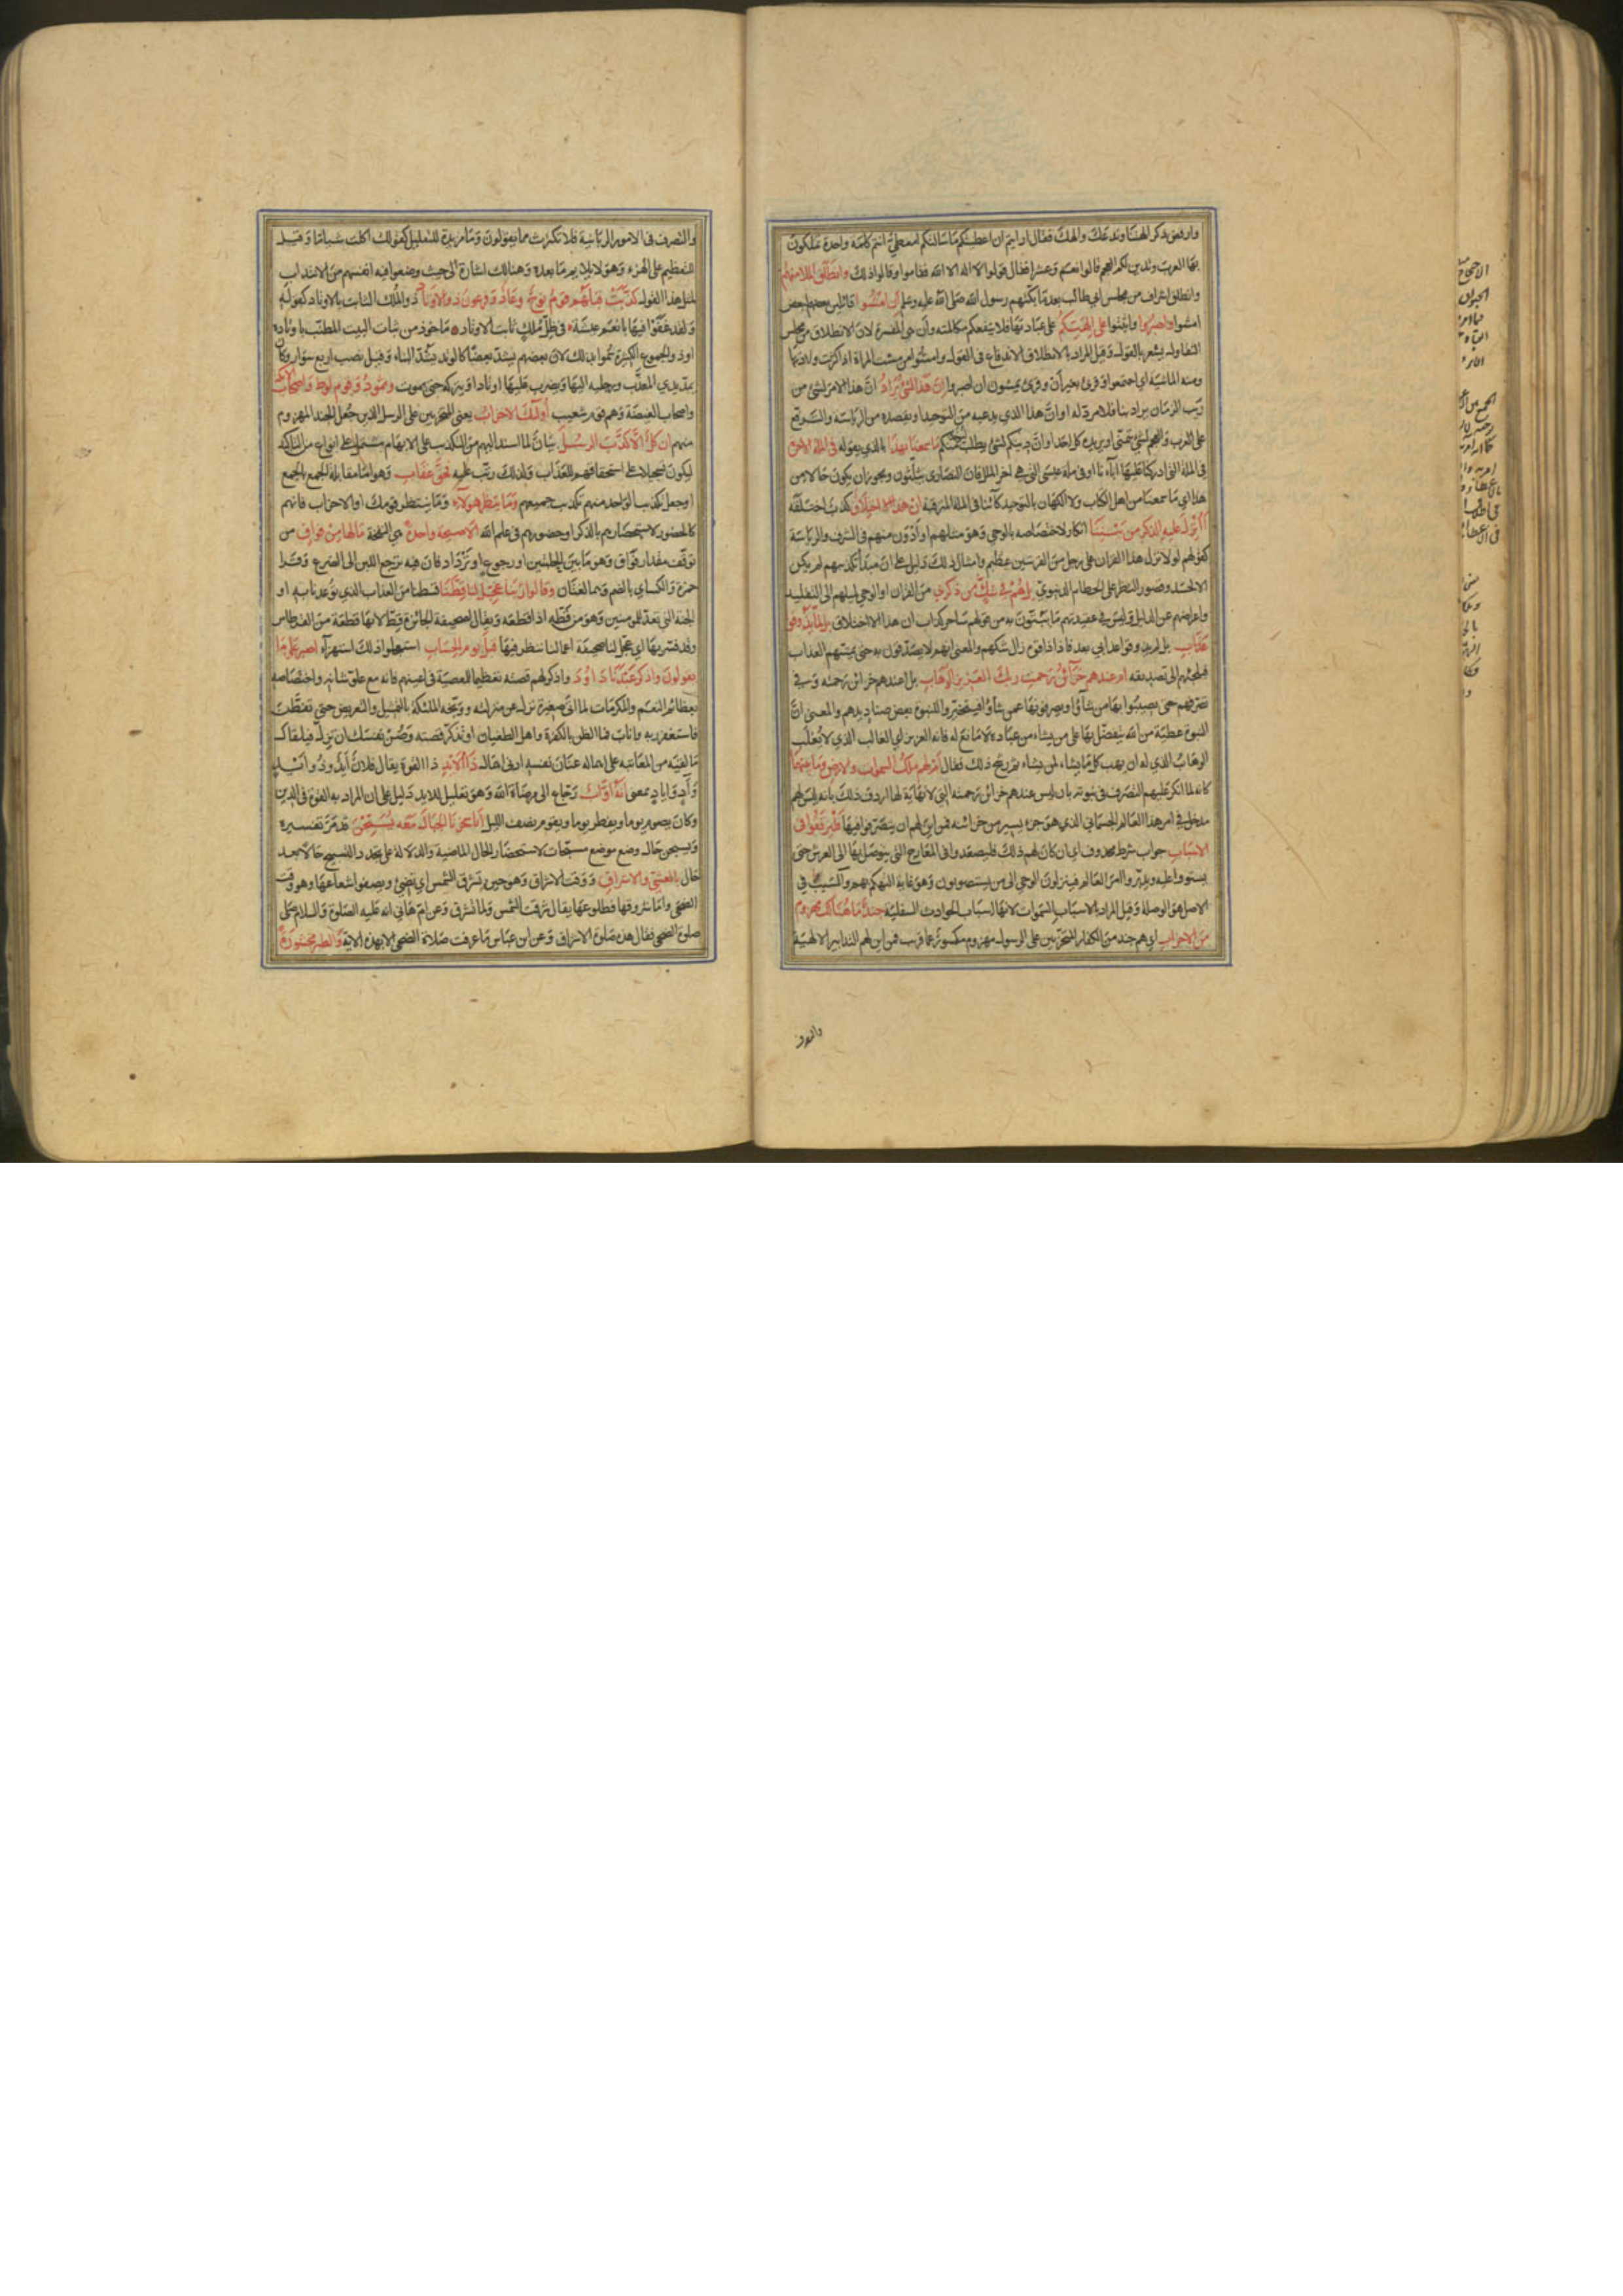 وارفض ذكر الهتنا وندعك والهك فقال ارايتم ان اعطيتكم ما سالتكم امعطيّ انتم كلمة واحدة تملكون
بها العرب وتدين لكم العجم قالوا نعم وعشرا فقال قولوا لا اله الا الله فقاموا وقالوا ذلك وانطلق الملا منهم
وانطلق اشراف من مجلس ابي طالب بعد ما بكتهم رسول الله صلى الله عليه وسلم ان امشوا قائلين بعضهم لبعض
امشوا واصبروا واثبتوا على الهتكم على عبادتها فلا ينفعكم مكالمته وان هي المفسرة لان الانطلاق من مجلس
التقاول يشعر بالقول وقيل المراد بالانطلاق الاندفاع في القول وامشوا من مشت المراة اذا كثرت ولادتها
ومنه الماشية اي اجتمعوا وقرئ بغير ان وقرئ يمشون ان اصبروا ان هذا لشئ يراد ان هذا الامر لشئ من
ريب الزمان يراد بنا فلا مرد له او ان هذا الذي يدعيه من التوحيد او يقصده من الرياسة والترفع
على العرب والعجم لشئ يتمنى او يريده كل احد او ان دينكم لشئ يطلب ما سمعنا بهذا بالذي يقوله في الملة الاخرة
في الملة التي ادركنا عليها آباءنا او في ملة عيسى التي هي اخر الملل فان النصارى يثلثون ويجوز ان يكون حالا من
هذا اي ما سمعنا من اهل الكتاب ولا الكهان بالتوحيد كائنا في الملة المترقبة ان هذا الا اختلاق كذب اختلقه
أأنزل عليه الذكر من بيننا انكار لاختصاصه بالوحي وهو مثلهم او أدون منهم في الشرف والرياسة
كقولهم لولا نزل هذا القران على رجل من القريتين عظيم وامثال ذلك دليل على ان مبدأ تكذيبهم لم يكن
الا الحسد وقصور النظر على الحطام الدنيوي بل هم في شك من ذكري من القران او الوحي لميلهم الى التقليد
واعراضهم عن الدليل وليس في عقيدتهم ما يبتّون به من قولهم ساحر كذاب ان هذا الا اختلاق بل لما يذوقوا
عذاب بل لم يذوقوا عذابي بعد فاذا ذاقوه زال شكهم والمعنى انهم لا يصدقون به حتى يمسهم العذاب
فيلجئهم الى تصديقه ام عندهم خزائن رحمت ربك العزيز الوهاب بل اعندهم خزائن رحمته وفي
تصرفهم حتى يصيبوا بها من شاؤا ويصرفونها عمن شاؤا فيتخيروا للنبوة بعض صناديدهم والمعنى ان
النبوة عطية من الله يتفضل بها على من يشاء من عباده لا مانع له فانه العزيز اي الغالب الذي لا يغلب
الوهاب الذي له ان يهب كل ما يشاء لمن يشاء ثم رشح ذلك فقال ام لهم ملك السموات والارض وما بينهما
كانه لما انكر عليهم التصرف في نبوته بان ليس عندهم خزائن رحمته التي لا نهاية لها اردف ذلك بانه ليس لهم
مدخل في امر هذا العالم الجسماني الذي هو جزء يسير من خزائنه فمن اين لهم ان يتصرفوا فيها فليرتقوا في
الاسباب جواب شرط محذوف اي ان كان لهم ذلك فليصعدوا في المعارج التي يتوصل بها الى العرش حتى
يستووا عليه ويدبروا امر العالم فينزلون الوحي الى من يستصوبون وهو غاية التهكم بهم والسبب في
الاصل هو الوصلة وقيل المراد بالاسباب السموات لانها اسباب الحوادث السفلية جند ما هنالك مهزوم
من الاحزاب اي هم جند من الكفار المتحزبين على الرسول مهزوم مكسور عما قريب فمن اين لهم التدابير الالهية
والتصرف
والتصرف في الامور الربانية فلا تكترث مما يقولون وما مزيدة للتقليل كقولك اكلت شيأ ما وقيل
للتعظيم على الهزء وهو لا يلايم ما بعده وهنالك اشارة الى حيث وضعوا فيه انفسهم من الانتداب
لمثل هذا القول كذبت قبلهم قوم نوح وعاد وفرعون ذو الاوتاد ذو الملك الثابت بالاوتاد كقوله
ولقد غنوا فيها بانعم عيشة في ظل ملك ثابت الاوتاد ماخوذ من ثبات البيت المطنب باوتاده
او ذو الجموع الكثيرة سموا بذلك لان بعضهم يشد بعضا كالوتد يشد البناء وقيل نصب اربع سوار وكان
يمد يدي المعذب ورجليه اليها ويضرب عليها اوتادا ويتركه حتى يموت وثمود وقوم لوط واصحاب الايكة
واصحاب الغيضة وهم قوم شعيب أولئك الاحزاب يعني المتحزبين على الرسل الذين جعل الجند المهزوم
منهم ان كل الا كذب الرسل بيان لما اسند اليهم من التكذيب على الابهام مشتمل على انواع من التاكيد
ليكون تسجيلا على استحقاقهم للعذاب ولذلك رتب عليه فحق عقاب وهو اما مقابلة الجمع بالجمع
او جعل تكذيب الواحد منهم تكذيب جميعهم وما ينظر هؤلاء وما ينتظر قومك او الاحزاب فانهم
كالحضور لاستحضارهم بالذكر او حضورهم في علم الله الا صيحة واحدة هي النفخة ما لها من فواق من
توقف مقدار فواق وهو ما بين الحلبتين او رجوع او ترداد فان فيه يرجع اللبن الى الضرع وقرا
حمزة والكسائي بالضم وهما لغتان وقالوا ربنا عجل لنا قطنا قسطنا من العذاب الذي توعدنا به او
الجنة التي تعد للمؤمنين وهو من قطه اذا قطعه ويقال لصحيفة الجائزة قط لانها قطعة من القرطاس
وقد فسر بها اي عجل لنا صحيفة اعمالنا ننظر فيها قبل يوم الحساب استعجلوا ذلك استهزآء اصبر على ما
يقولون واذكر عبدنا داود واذكر لهم قصته تعظيما للمعصية في اعينهم فانه مع علو شانه واختصاصه
بعظائم النعم والمكرمات لما اتى صغيرة نزل عن منزلته ووبخه الملئكة بالتمثيل والتعريض حتى تفطن
فاستغفر ربه واناب فما الظن بالكفرة واهل الطغيان او تذكر قصته وصن نفسك ان تزل فيلقاك
ما لقيه من المعاتبة على اهماله عنان نفسه ادنى اهمال ذا الايد ذا القوة يقال فلان أيد وذو ايد
وآد واياد بمعنى انه أواب رجاع الى مرضاة الله وهو تعليل للايد دليل على ان المراد به القوة في الدين
وكان يصوم يوما ويفطر يوما ويقوم نصف الليل إنا سخرنا الجبال معه يسبحن قد مر تفسيره
ويسبحن حال وضع موضع مسبحات لاستحضار الحال الماضية والدلالة على تجدد التسبيح حالا بعد
حال بالعشي والاشراق ووقت الاشراق وهو حين تشرق الشمس اي تضئ ويصفوا شعاعها وهو وقت
الضحى واما شروقها فطلوعها يقال شرقت الشمس ولما تشرق وعن ام هاني انه عليه الصلوة والسلام صلى
صلوة الضحى فقال هذه صلوة الاشراق وعن ابن عباس ما عرفت صلاة الضحى الا بهذه الاية والطير محشورة